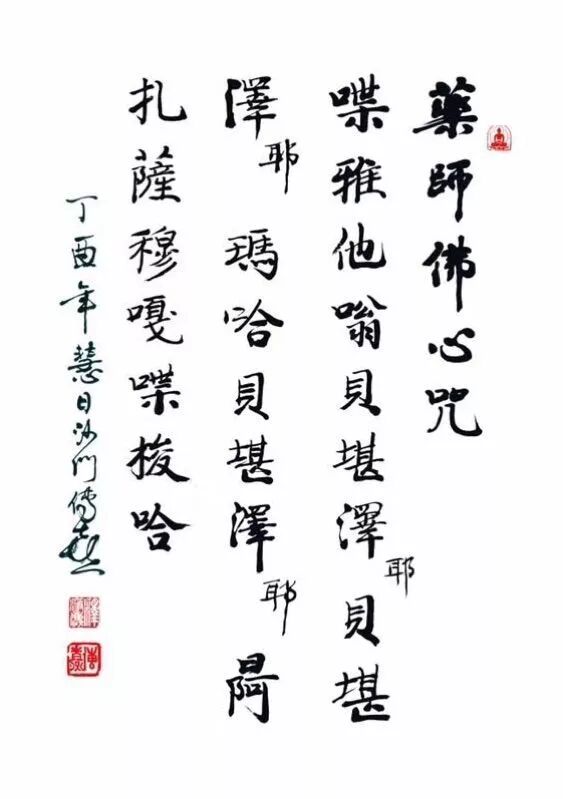 藥師佛心咒
喋雅他嗡貝堪澤耶貝堪
澤耶 瑪哈貝堪澤耶 日阿
扎薩穆嘎喋梭哈
丁酉年慧日沙門傳喜